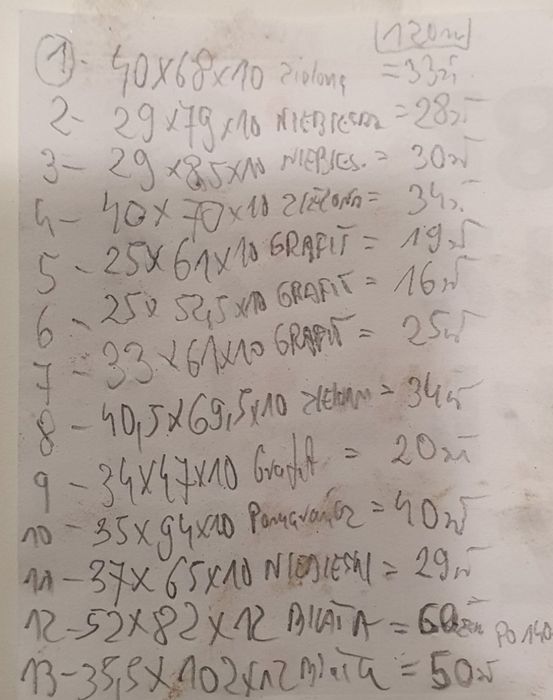 120zł
1 - 40x68x10 zielona = 33zł
2 - 29x79x10 NIEBIESKA = 28zł
3 - 29x85x10 NIEBIES. = 30zł
4 - 40x70x10 ZIELONA = 34zł
5 - 25x61x10 GRAFIT = 19zł
6 - 25x52,5x10 GRAFIT = 16zł
7 - 33x61x10 GRAFIT = 25zł
8 - 40,5x69,5x10 = 34zł
9 - 34x47x10 Grafit = 20zł
10 - 35x94x10 Pomarańcz = 40zł
11 - 37x65x10 NIEBIESKI = 29zł
12 - 52x82x12 BIAŁA = 60zł PO 140
13 - 35,5x102x12 Biała = 50zł